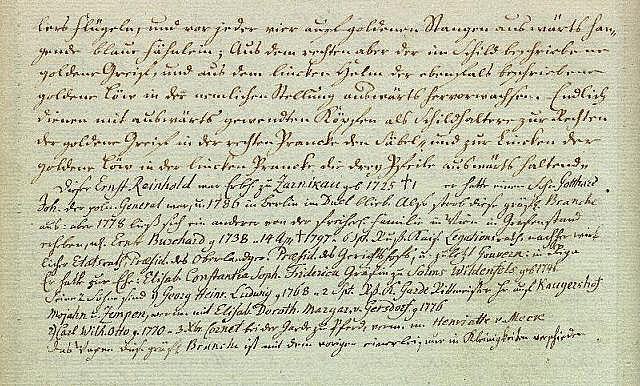 lers Flügeln, und vor jeder vier auf goldenen Stangen auswärts han-
gende blaue Fähnlein; Aus dem rechten aber der im Schild beschriebene
goldene Greif, und aus dem lincken Helm der ebenfals beschriebene
goldene Löw in der nemlichen Stellung auswärts hervorwachsen. Endlich
dienen mit auswärts gewendten Köpfen als Schildhaltere zur Rechten
der goldene Greif in der rechten Prancke den Säbel, und zur Lincken der
goldene Löw in der lincken Prancke die drey Pfeile auswärts haltende
Dieser Ernst Reinhold war Erbh. zu Zarnikau geb 1725 † er hatte einen Sohn Gotthard
Joh. der poln. General war, u 1786 in Berlin im Duel blieb. Also starb diese gräfl. Branche
aus: aber 1778 ließ sich ein anderer von der freiherr. Familie in Wien in Grafenstand
erheben, nh. Ernst Burchard g 1738. 14 Apr † 1797. Russ. Kais. Legationsrath, nachher
Etatsrath Præsid. des Oberlandger. Præsid. des Gerichtshofs, u zuletzt Gouvern. in Riga
Er hatte zur Ehe: Elisab Constantia Soph. Friderica Gräfin zu Solms Wildenfels, geb 1741
Seine 2 Söhne sind 1) Georg Heinr. Ludwig g 1768 Garde Rittmeister Hr auf Kaugershof
Mojahn u Jempen, verm mit Elisab. Doroth. Margar. v. Gersdorf, g 1776
2) Karl Wilh Otto g. 1770 Cornet bei der Garde zu Pferde, verm. mit Henriette v Meck
Das Wapen dies. gräfl Branche ist mit dem vorigen einerlei, nur in Kleinigkeiten verschieden